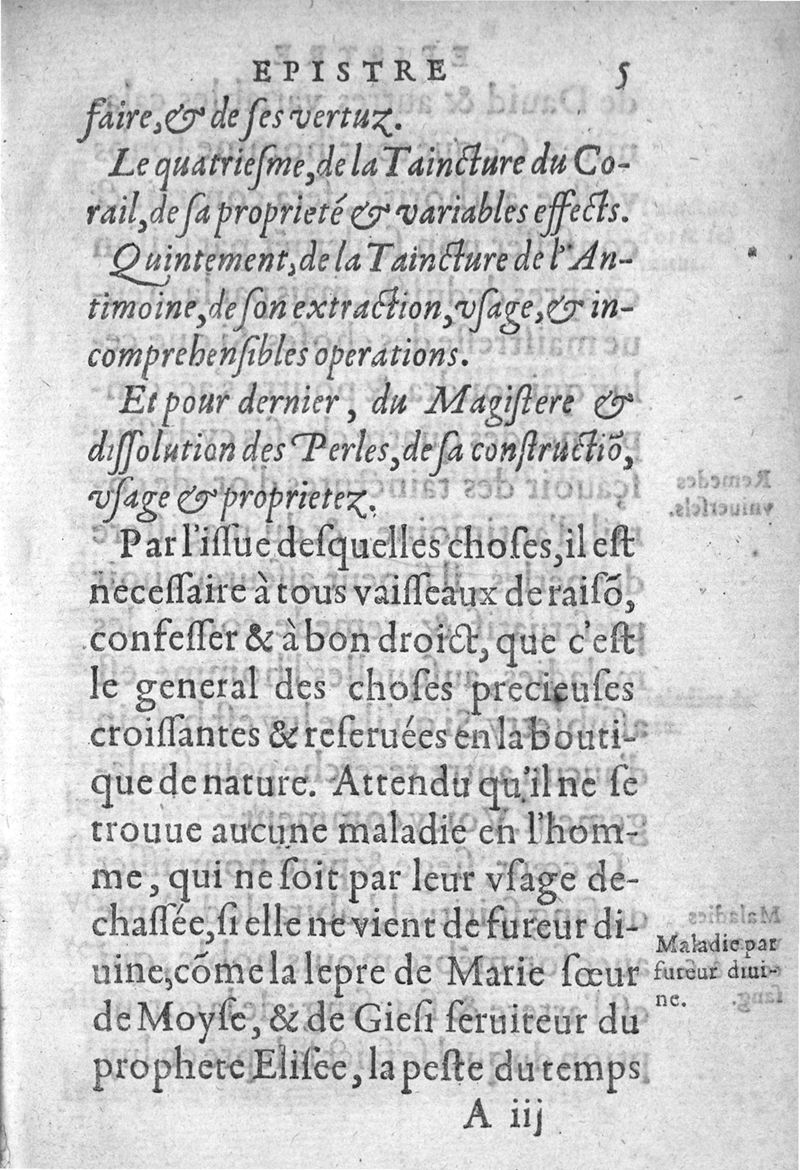 EPISTRE 5
faire,& de ſes vertuz.
Le quatrieſme,de la Taincture du Co-
rail,de ſa proprieté & variables effects.
Quintement,de la Taincture de l'An-
timoine,de ſon extraction,vſage,& in-
comprehenſibles operations.
Et pour dernier, du Magiſtere &
diſſolution des Perles,de ſa conſtructiõ,
vſage & proprietez.
Par l'iſſue deſquelles choſes,il eſt
neceſſaire à tous vaiſſeaux de raiſõ,
confeſſer & à bon droict, que c'eſt
le general des choſes precieuſes
croiſſantes & reſeruées en la bouti-
que de nature. Attendu qu'il ne ſe
trouue aucune maladie en l'hom-
me, qui ne ſoit par leur vſage de-
chaſſée,ſi elle ne vient de fureur di-
uine,cõme la lepre de Marie ſœur
de Moyſe, & de Gieſi ſeruiteur du
prophete Eliſée, la peſte du temps
Maladie par
fureur diui-
ne.
A iij